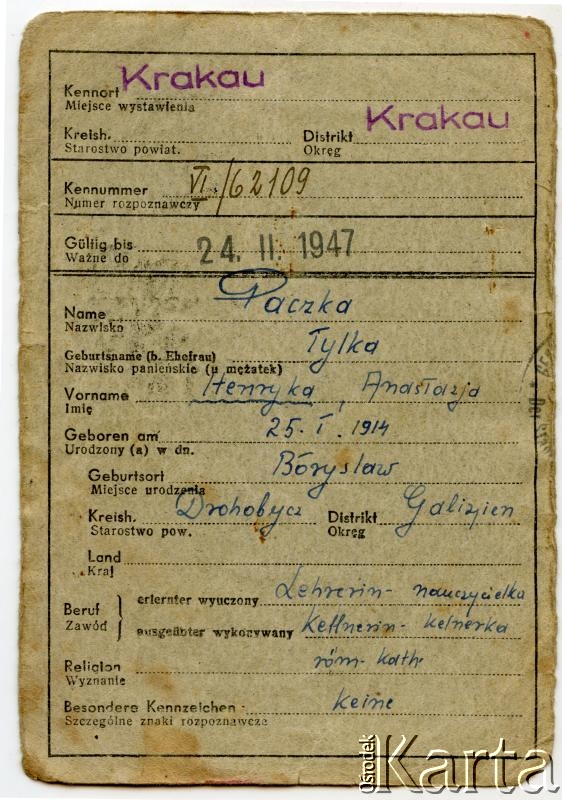 Kennort Krakau
Miejsce wystawienia
Kreish. Distrikt Krakau
Starostwo powiat. Okręg
Kennummer VI/62109
Numer rozpoznawczy
Gültig bis 24. II. 1947
Ważne do
Name Paczka
Nazwisko
Geburtsname (b. Ehefrau) Tylka
Nazwisko panieńskie (u mężatek)
Vorname Henryka, Anastazja
Imię
Geboren am 25. I. 1914
Urodzony (a) w dn.
Geburtsort Borysław
Miejsce urodzenia
Kreish. Drohobycz Distrikt Galizien
Starostwo pow. Okręg
Land
Kraj
Beruf erlernter wyuczony Lehrerin - nauczycielka
Zawód ausgeübter wykonywany Kellnerin - kelnerka
Religion röm-kath
Wyznanie
Besondere Kennzeichen keine
Szczególne znaki rozpoznawcze
ośrodek Karta